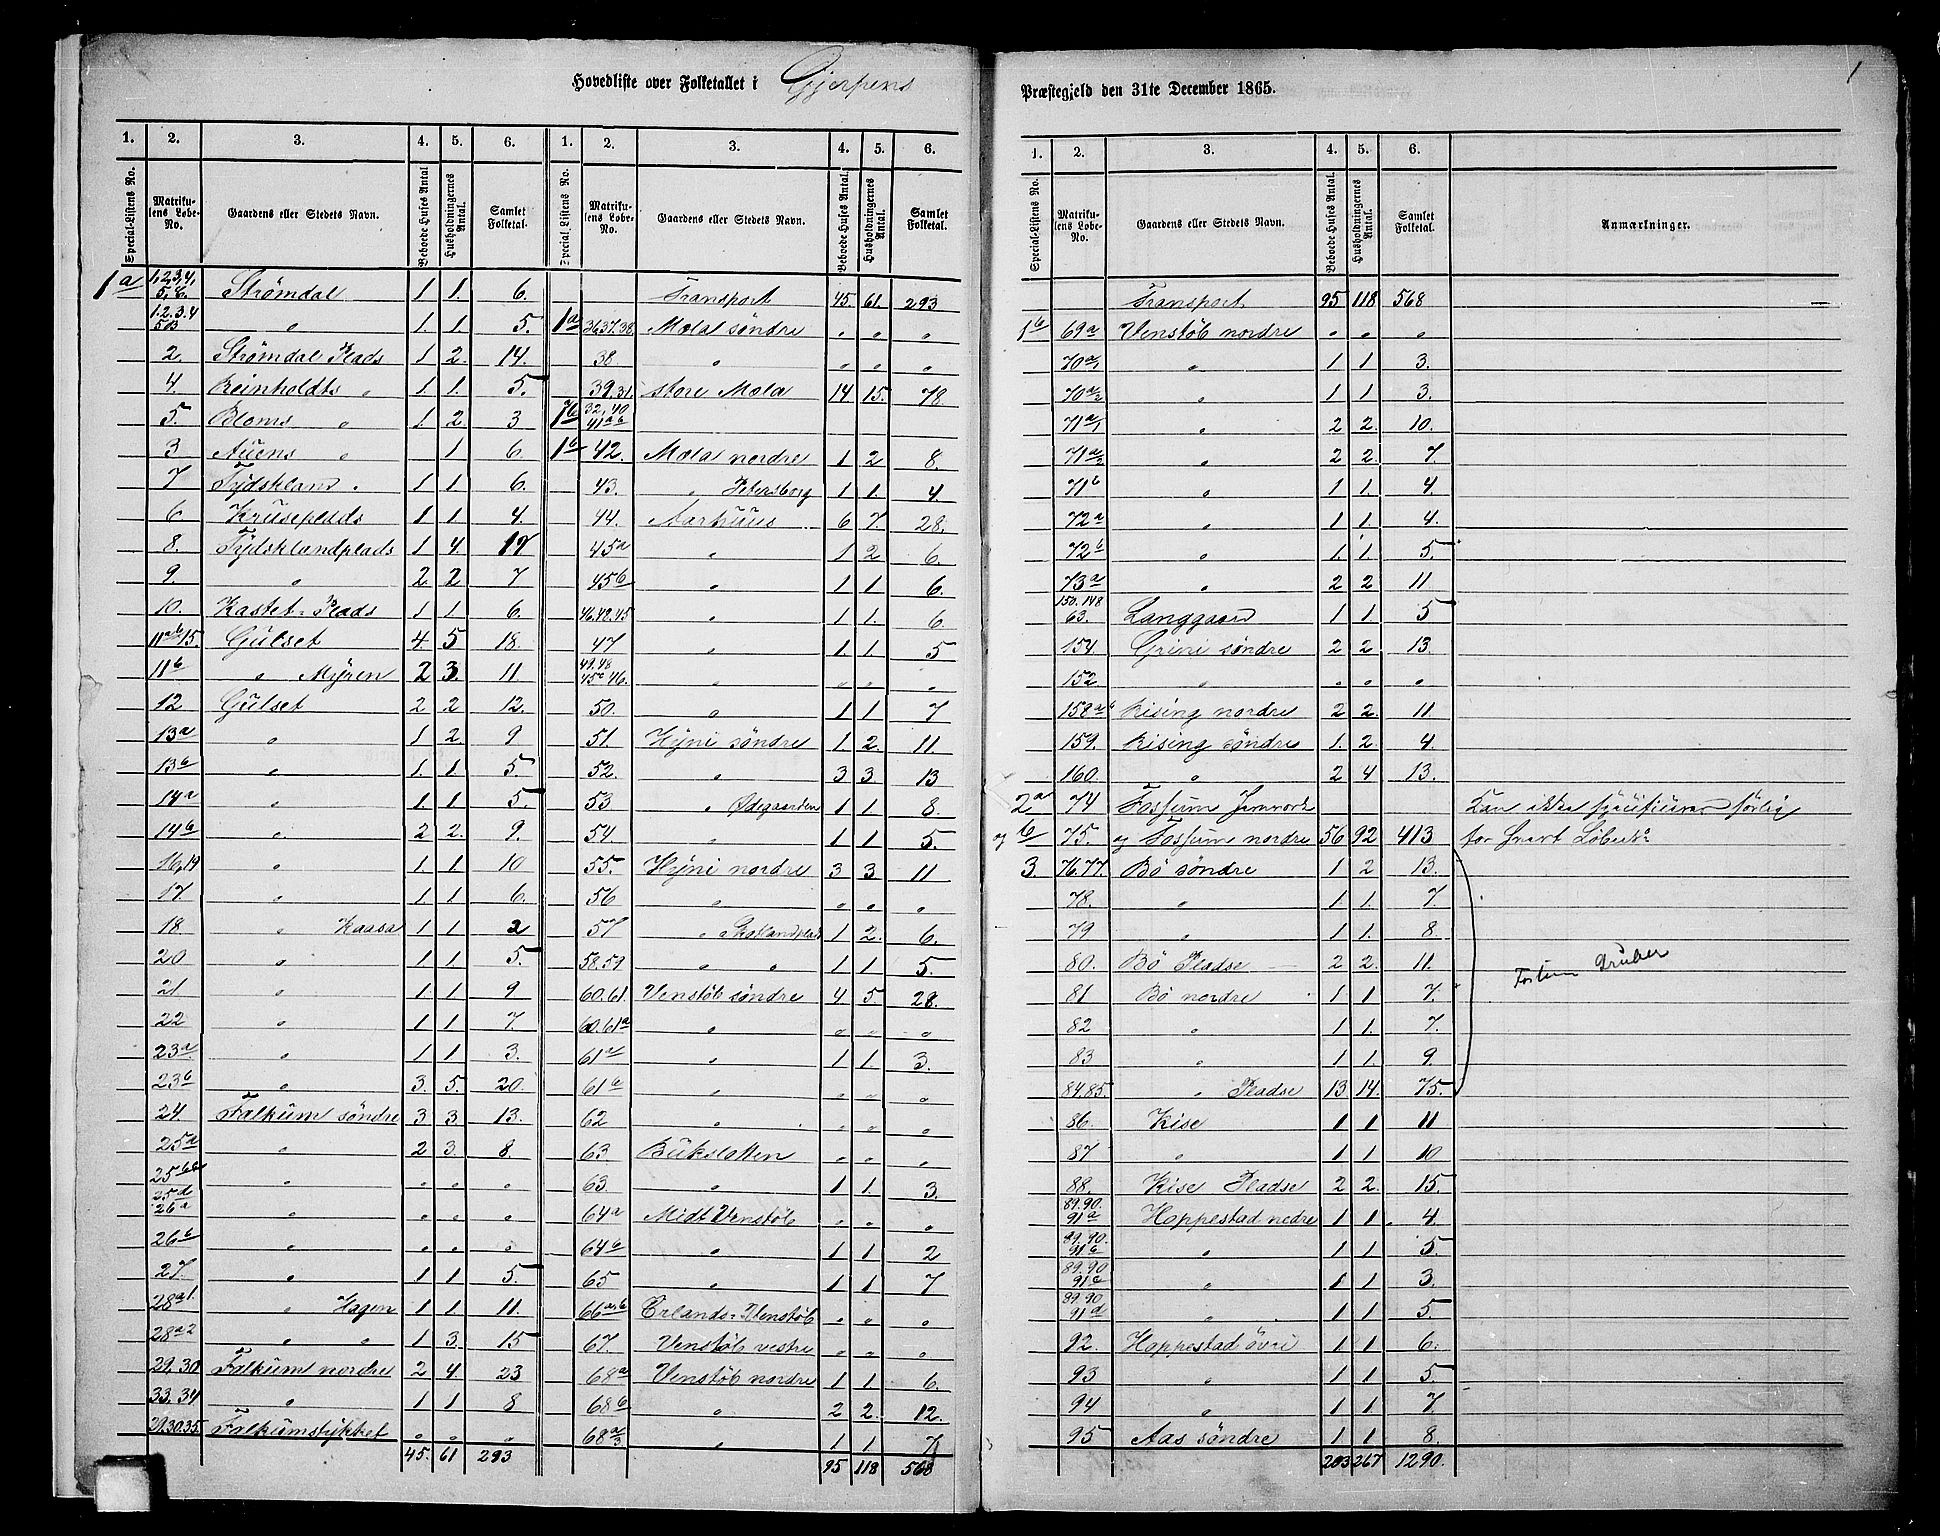 Hovedliste over Folketallet i Gjerpens
1. 2. 3. 4. 5. 6. 1. 2. 3. 4. 5. 6.
Special-Listens No. Matrikulens Løbe-No. Gaardens eller Stedets Navn. Beboede Huses Antal Husholdningernes Antal. Samlet Folketal. Special Listens No. Matrikulens Løbe-No. Gaardens eller Stedets Navn. Beboede Huses Antal. Husholdningernes Antal. Samlet Folketal.
1a 1,2,3,4, 5, 6. Strømdal 1 1. 6.
1.2.3.4 5B " 1. 1. 5.
2. Strømdal Plads 1 2. 14.
4. Reinholdts " 1 1. 5.
5. Bloms " 1. 2. 3
3 Auens " 1 6.
7 Tydskland " 1 1. 6.
6 Kruseplads 1 1. 4.
8. Tydsklandplads 1 4. 17
9 " 2. 2 7
10. Kastet-Plads 1 1 6.
11ab 15. Gulset 4. 5 18.
11b " Myren 2 3. 11.
12 Gulset 2 2 12.
13a " 1 2. 9
13b " 1. 1. 5.
14a " 1. 1. 5.
14b " 2 2. 9.
16,19 " 1. 1. 10
17 " 1 1 6.
18. " Kaasa 1 1 2
20 " 1 1. 5.
21 " 1 1 9
22 " 1 1 7
23a " 1 1 3.
23b " 3. 5. 20.
24. Falkum søndre 3 3. 13.
25a " 2 3. 8.
25bc " " " "
25d 26a " " " "
26b " " " "
27. " 1 1 5.
28a1. " Hagen 1 1 11.
28a2 " " 1 3. 15
29,30 Falkum nordre 2 4. 23
33.34 " 1 1 8
29.30.35. Falkumstykket " " "
45. 61 293
Transport 45. 61. 293
1a 36.37.38. Mæla søndre " " "
38. " " "
39.31. store Mæla 14 15. 78.
1b 32, 40 41ab
1b 42. Mæla nordre 1 2 8.
43. " Petersborg 1 1. 4
44. Aarhuus 6 7. 28.
45a " 1 2 6.
45b " 1 1 6.
46.48.45 " 1 1. 6
47 " 1. 1. 5
49.48 45c 46. " " " "
50. " 1 1. 7
51. Hyni søndre 1. 2. 11
52. " 3 3. 13
53 " Ødegaarden 1 1. 8
54. " 1 1 5.
55. Hyni nordre 3 3. 11
56 " " " "
57 " 1 2. 6.
58.59 " " 1 1. 5.
60.61. Venstøb søndre 4 5 28.
60.61a " " " "
61a " 1 1. 3.
61b " " " "
62 " " " "
63 Bukslatten " " "
63. " 1 1. 3.
64a Midt Venstøb " " "
64b " 1 1 2
65 " 1 1. 7
66a&b Erlands-Venstøb " " "
67. Venstøb vestre " " "
68a Venstøb nordre 1 1. 6.
68b " 2 2. 12.
68a3 " 1 1. 7
95 118 568
Præstegjeld den 31te December 1865.
1
1. 2. 3. 4. 5. 6.
Special-Listens No. Matrikulens Løbe-No. Gaardens eller Stedets Navn. Beboede Huses Antal. Husholdningernes Antal. Samlet Folketal. Anmærkninger.
Transport 95 118 568
1b 69a Venstøb nordre " " "
70a1 " 1 1 3.
70a2 " 1 1 3.
71a1 " 2 2. 10.
71a2 " 2 2. 7
71b " 1 1. 4.
72a " 1 1. 4.
72b " 1 1. 5.
73a " 2 2 11
150.148 63. Langgaard 1 1. 5
154. Grini søndre 2 2. 13.
152 " " " "
158ab Rising nordre 2 2. 11.
159. Rising søndre 1. 2. 4.
160. " 2 4 13.
2a 74 Fossum Jernværk Kan ikke specificeres særlig
og b 75. og Fossum nordre 56 92 413 for hvert Løbeno
3. 76.77. Bö søndre 1 2 13.
78. " 1 1. 7.
79 " 1 1. 8.
80. Bö Pladse 2 2. 11. Fossum Gruber
81 Bö nordre 1 1 7.
82 " 1 1. 7.
83 " 1 1. 9.
84.85. " Pladse 13 14. 75.
86. Kise 1 1 11
87 " 1 1. 10
88. Kise Pladse 2 2. 15.
89.90. 91a Hoppestad nedre 1 1 4.
89.90. 91b " 1 1 5.
89.90 91c " 1 1 3.
89.90 91d " 1 1. 5.
92. Hoppestad övre 1 1. 6.
93 " 1 1. 5.
94 " 1 1. 7.
95 Aas søndre 1 1 8.
203 267 1290.